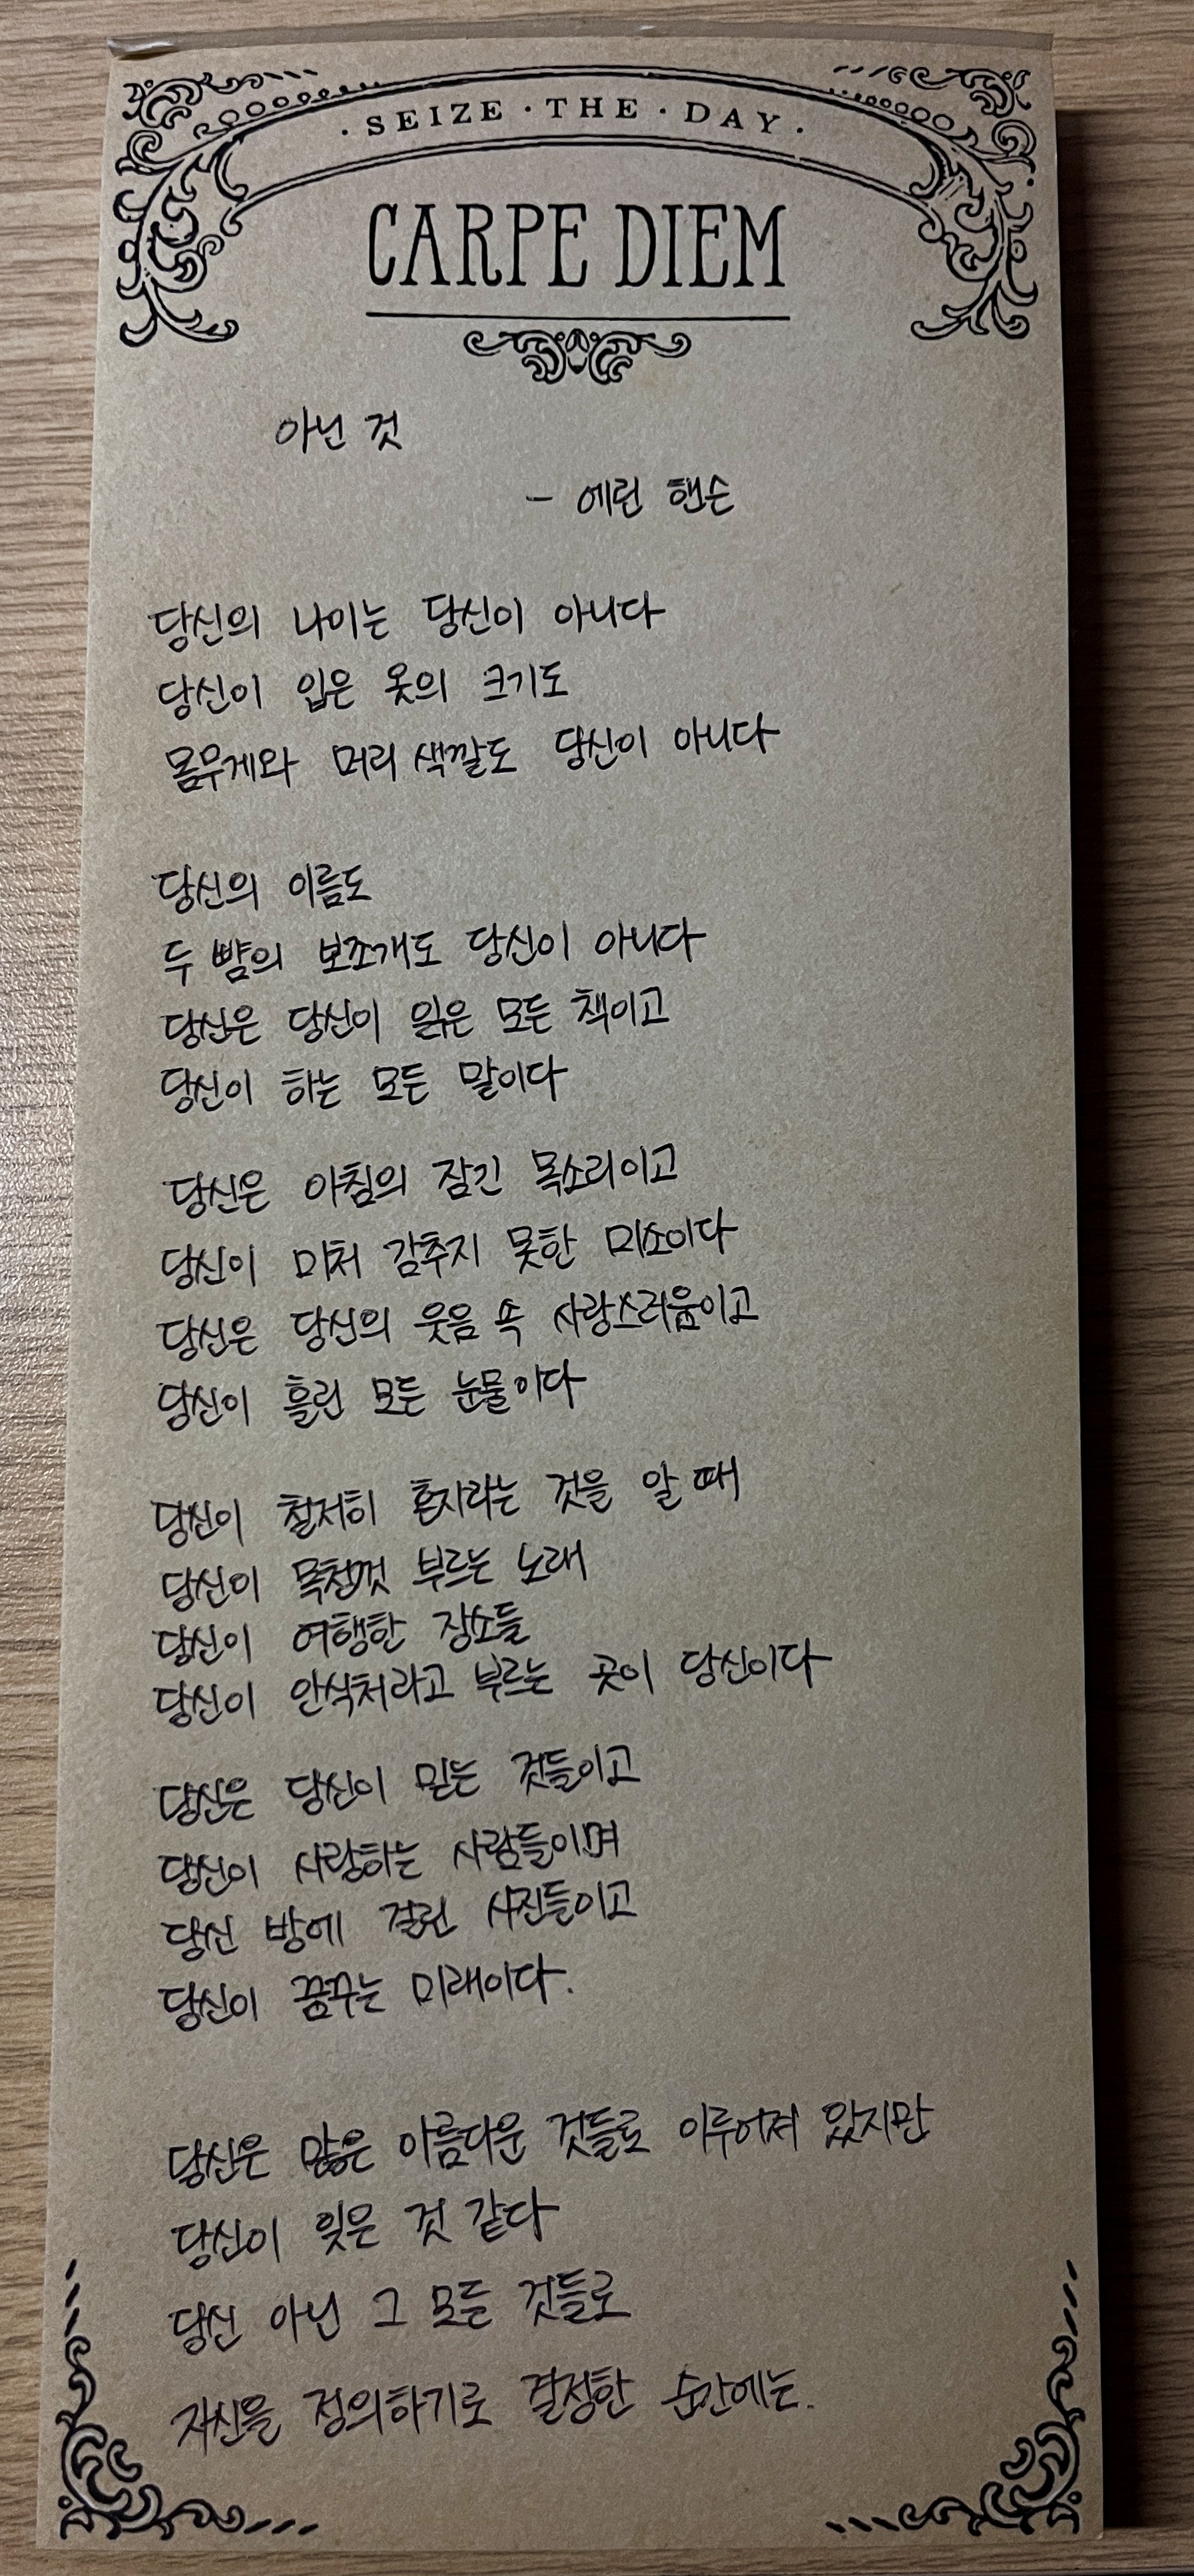 · SEIZE · THE · DAY ·
CARPE DIEM
아닌 것
- 에린 핸슨
당신의 나이는 당신이 아니다
당신이 입은 옷의 크기도
몸무게와 머리 색깔도 당신이 아니다
당신의 이름도
두 뺨의 보조개도 당신이 아니다
당신은 당신이 읽은 모든 책이고
당신이 하는 모든 말이다
당신은 아침의 잠긴 목소리이고
당신이 미처 감추지 못한 미소이다
당신은 당신의 웃음 속 사랑스러움이고
당신이 흘린 모든 눈물이다
당신이 철저히 혼자라는 것을 알 때
당신이 목청껏 부르는 노래
당신이 여행한 장소들
당신이 안식처라고 부르는 곳이 당신이다
당신은 당신이 믿는 것들이고
당신이 사랑하는 사람들이며
당신 방에 걸린 사진들이고
당신이 꿈꾸는 미래이다.
당신은 많은 아름다운 것들로 이루어져 왔지만
당신이 잊은 것 같다
당신 아닌 그 모든 것들로
자신을 정의하기로 결정한 순간에는.